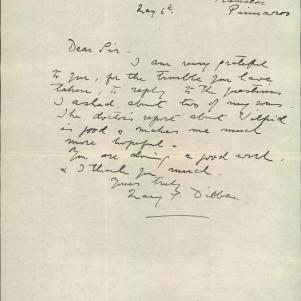 Pinnaroo
May 6th
Dear Sir -
I am very grateful
to you, for the trouble you have
taken, to reply to the questions
I asked, about two of my sons.
The doctor's report about Wilfrid
is good & makes me much
more hopeful -
You are doing a good work,
& I thank you much.
Yours truly
Mary F. Dibben